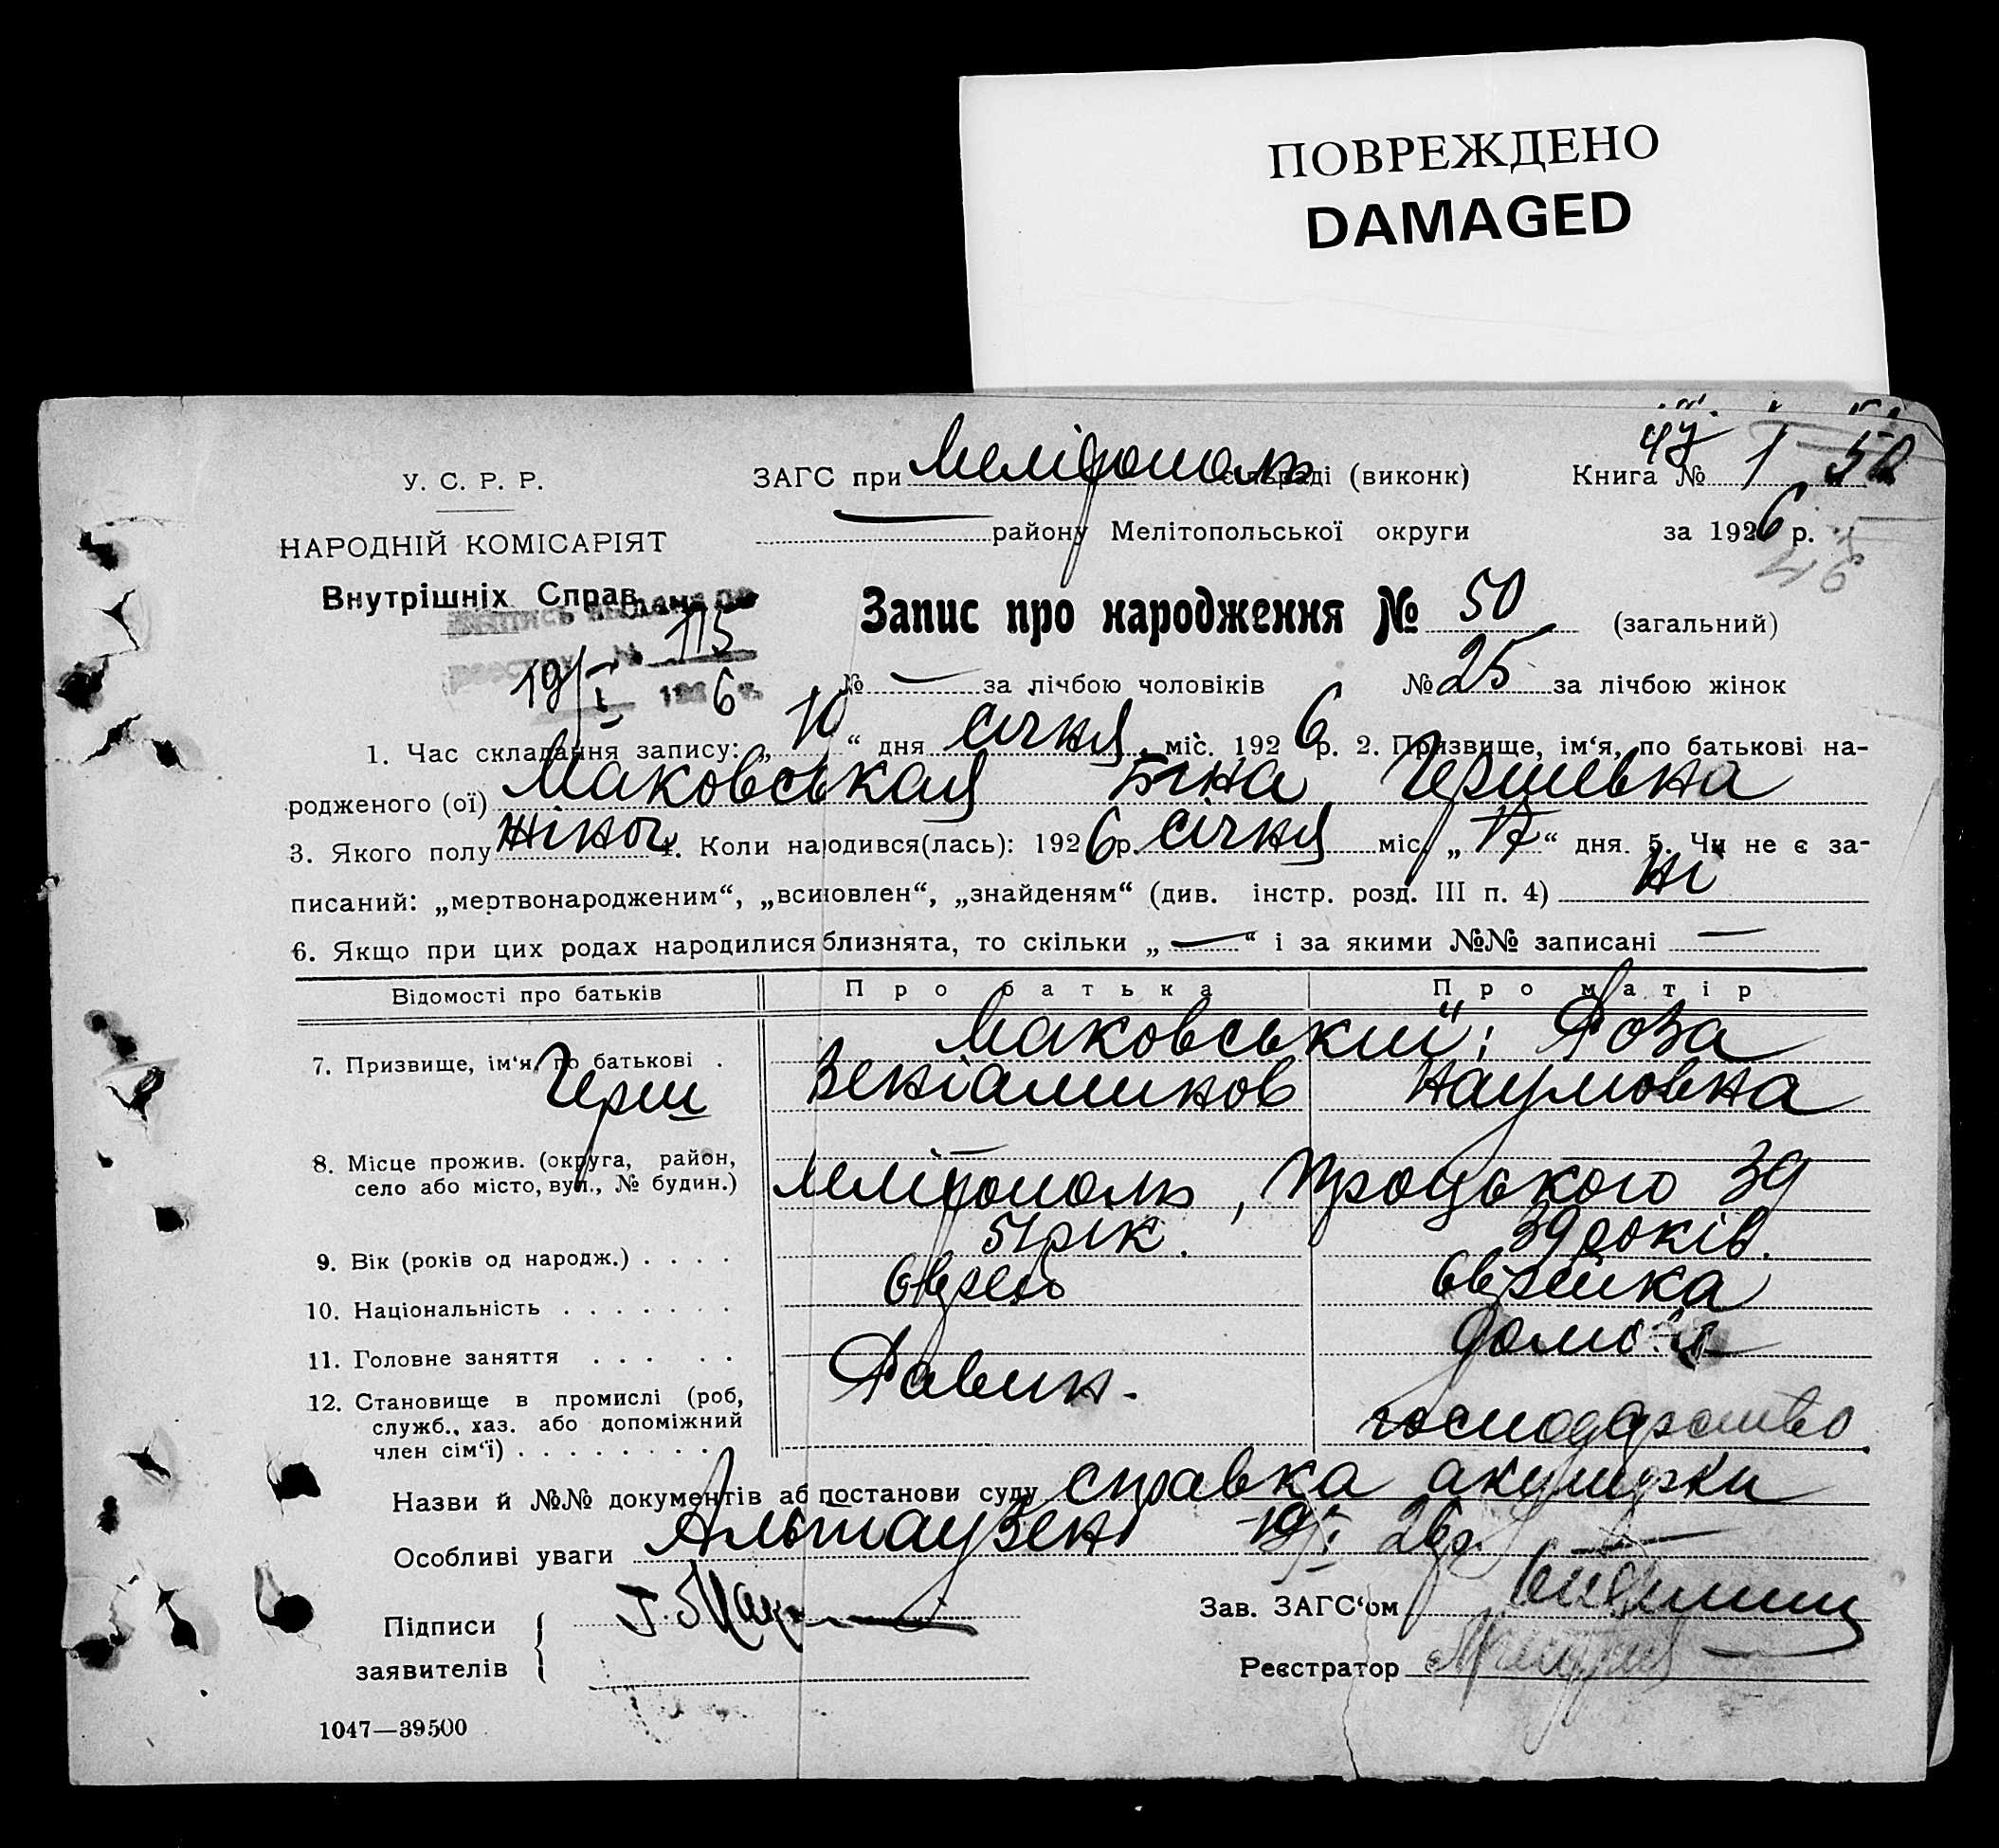 ПОВРЕЖДЕНО
DAMAGED
У. С. Р. Р.
НАРОДНІЙ КОМІСАРІЯТ
Внутрішніх Справ
ЗАГС при Мелітополь сільраді (виконк)
Книга № 1
району Мелітопольської округи
за 1926 р.
Запис про народження № 50 (загальний)
115
19/I 1926 г.
№ — за лічбою чоловіків № 25 за лічбою жінок
1. Час складання запису: „ “ дня січня міс. 1926 р. 2. Призвище, ім‘я, по батькові на-
родженого (ої) Маковськая Гершевна
3. Якого полу жіноч 4. Коли народився(лась): 1926 р. січня міс. „ “ дня. 5. Чи не є за-
писаний: „мертвонародженим“, „всиновлен“, „знайденям“ (див. інстр. розд. III п. 4) ні
6. Якщо при цих родах народилися близнята, то скільки „—“ і за якими №№ записані —
Відомості про батьків Про батька Про матір
7. Призвище, ім‘я, по батькові . Маковський: Роза
Герш Веніаминов Наумовна
8. Місце прожив. (округа, район,
село або місто, вул., № будин.) Мелітополь, Троцького 39
9. Вік (років од народж.) . . . . 51 рік. 39 років.
10. Національність . . . . . . . єврей єврейка
11. Головне заняття . . . . . Равин. домоє
12. Становище в промислі (роб,
служб., хаз. або допоміжний
член сім‘ї) . . . . . . . . господарство.
Назви й №№ документів або постанови суду справка акушерки
Особливі уваги Альтаузен 19/I 26 р.
Підписи
заявителів
Г. Мак
Зав. ЗАГС‘ом
Реєстратор
1047—39500